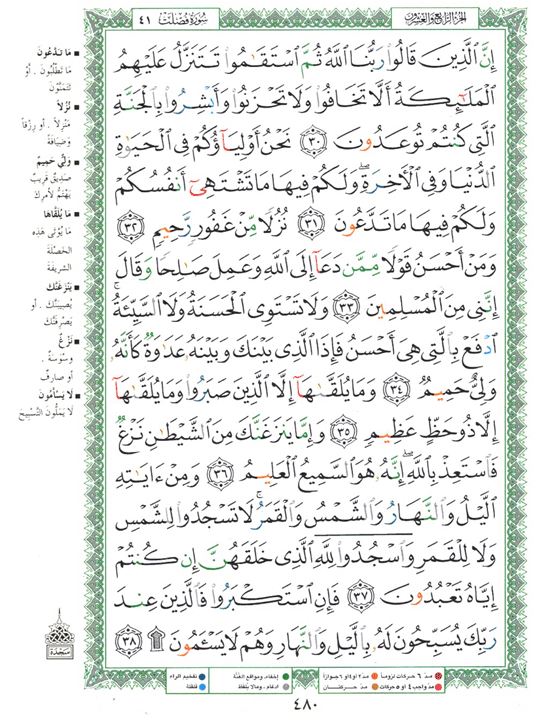 الجزء الرابع والعشرون
سُورَةُ فُصِّلَتْ ٤١
إِنَّ ٱلَّذِينَ قَالُوا۟ رَبُّنَا ٱللَّهُ ثُمَّ ٱسْتَقَٰمُوا۟ تَتَنَزَّلُ عَلَيْهِمُ
ٱلْمَلَٰٓئِكَةُ أَلَّا تَخَافُوا۟ وَلَا تَحْزَنُوا۟ وَأَبْشِرُوا۟ بِٱلْجَنَّةِ
ٱلَّتِى كُنتُمْ تُوعَدُونَ ﴿٣٠﴾ نَحْنُ أَوْلِيَآؤُكُمْ فِى ٱلْحَيَوٰةِ
ٱلدُّنْيَا وَفِى ٱلْءَاخِرَةِ ۖ وَلَكُمْ فِيهَا مَا تَشْتَهِىٓ أَنفُسُكُمْ
وَلَكُمْ فِيهَا مَا تَدَّعُونَ ﴿٣١﴾ نُزُلًا مِّنْ غَفُورٍ رَّحِيمٍ ﴿٣٢﴾
وَمَنْ أَحْسَنُ قَوْلًا مِّمَّن دَعَآ إِلَى ٱللَّهِ وَعَمِلَ صَٰلِحًا وَقَالَ
إِنَّنِى مِنَ ٱلْمُسْلِمِينَ ﴿٣٣﴾ وَلَا تَسْتَوِى ٱلْحَسَنَةُ وَلَا ٱلسَّيِّئَةُ ۚ
ٱدْفَعْ بِٱلَّتِى هِىَ أَحْسَنُ فَإِذَا ٱلَّذِى بَيْنَكَ وَبَيْنَهُۥ عَدَٰوَةٌ كَأَنَّهُۥ
وَلِىٌّ حَمِيمٌ ﴿٣٤﴾ وَمَا يُلَقَّىٰهَآ إِلَّا ٱلَّذِينَ صَبَرُوا۟ وَمَا يُلَقَّىٰهَآ
إِلَّا ذُو حَظٍّ عَظِيمٍ ﴿٣٥﴾ وَإِمَّا يَنزَغَنَّكَ مِنَ ٱلشَّيْطَٰنِ نَزْغٌ
فَٱسْتَعِذْ بِٱللَّهِ ۖ إِنَّهُۥ هُوَ ٱلسَّمِيعُ ٱلْعَلِيمُ ﴿٣٦﴾ وَمِنْ ءَايَٰتِهِ
ٱلَّيْلُ وَٱلنَّهَارُ وَٱلشَّمْسُ وَٱلْقَمَرُ ۚ لَا تَسْجُدُوا۟ لِلشَّمْسِ
وَلَا لِلْقَمَرِ وَٱسْجُدُوا۟ لِلَّهِ ٱلَّذِى خَلَقَهُنَّ إِن كُنتُمْ
إِيَّاهُ تَعْبُدُونَ ﴿٣٧﴾ فَإِنِ ٱسْتَكْبَرُوا۟ فَٱلَّذِينَ عِندَ
رَبِّكَ يُسَبِّحُونَ لَهُۥ بِٱلَّيْلِ وَٱلنَّهَارِ وَهُمْ لَا يَسْـَٔمُونَ ۩ ﴿٣٨﴾
■ مَا تَدَّعُونَ
مَا تَطْلُبُونَ . أَوْ
تَتَمَنَّوْنَ
■ نُزُلًا
مَنْزِلًا . أو رِزْقًا
وَضِيَافَةً
■ وَلِيٌّ حَمِيمٌ
صَدِيقٌ قَرِيبٌ
يَهْتَمُّ لأَمْرِكَ
■ مَا يُلَقَّاهَا
مَا يُؤْتَى هَذِهِ
الخَصْلَةَ
الشريفةَ
■ يَنْزَغَنَّكَ
يُصِيبَنَّكَ . أو
يَصْرِفَنَّكَ
■ نَزْغٌ
وَسْوَسَةٌ .
أو صارفٌ
■ لَا يَسْأَمُونَ
لَا يَمَلُّونَ التَّسْبِيحَ
سَجْدَة
مدّ ٦ حركات لزوماً مدّ ٢ أو ٤ أو ٦ جوازاً
مدّ واجب ٤ أو ٥ حركات مدّ حركتان
إخفاء، ومواقع الغُنَّة
ادغام، ومالا يُلفظ
تفخيم الراء
قلقلة
٤٨٠